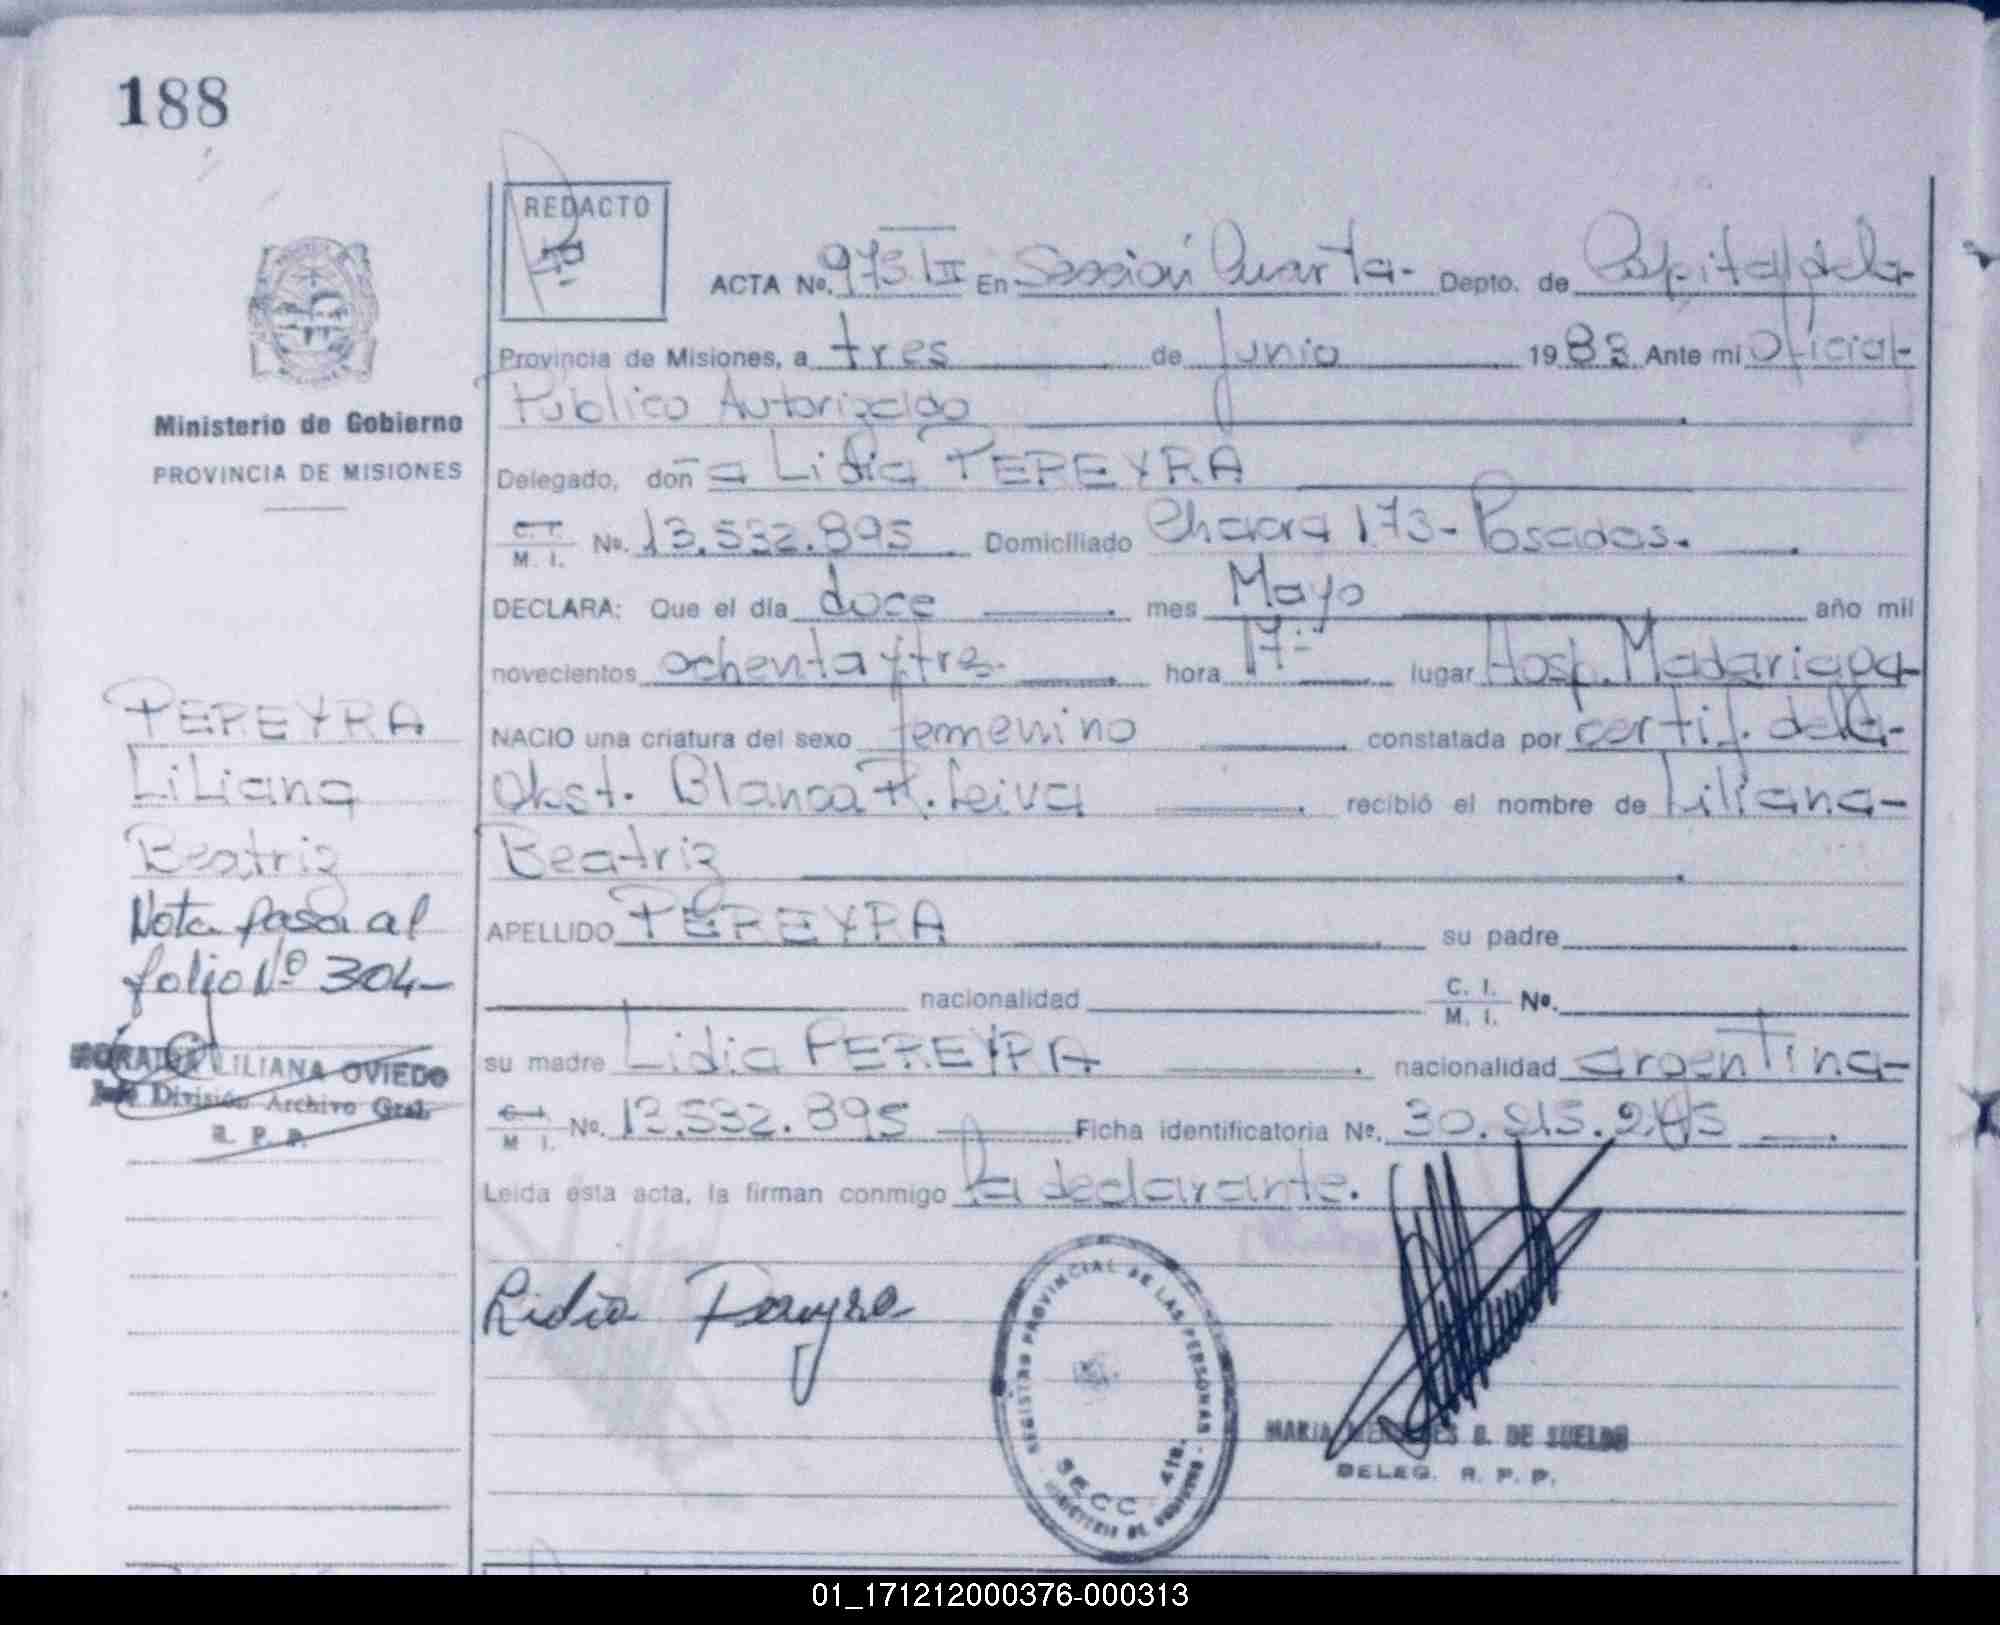 188
REDACTO
ACTA No. 973 III En Sección Cuarta- Depto. de Capital dela-
Provincia de Misiones, a tres de Junio 1983. Ante mi Oficial-
Público Autorizado
Ministerio de Gobierno
PROVINCIA DE MISIONES
Delegado, doña Lidia PEREYRA
M. I. No. 13.532.895 Domiciliado Chacra 173- Posadas.
DECLARA: Que el día doce mes Mayo año mil
novecientos ochenta y tres. hora 17- lugar Hosp. Madariaga-
NACIO una criatura del sexo femenino constatada por certif. dela-
Obst. Blanca R. Leiva recibió el nombre de Liliana-
Beatriz
APELLIDO PEREYRA su padre
nacionalidad C. I. M. I. No.
su madre Lidia PEREYRA nacionalidad argentina-
M I. No. 13.532.895 Ficha identificatoria No. 30.
Leída esta acta, la firman conmigo la declarante.
PEREYRA
Liliana
Beatriz
Nota pasa al
folio Nº 304-
LILIANA OVIEDO
Jefe División Archivo Gral.
R. P. P.
Lidia Pereyra
REGISTRO PROVINCIAL DE LAS PERSONAS
SECC 4ta.
MINISTERIO DE GOBIERNO
MARIA MERCEDES B. DE SUELDO
DELEG. R. P. P.
01_171212000376-000313